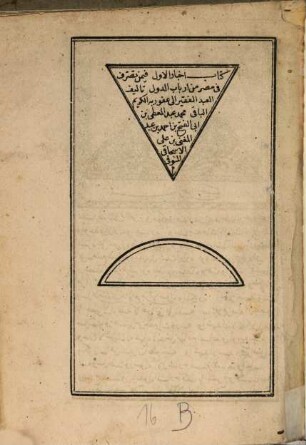 كتاب اخبار الاول فيمن تصرف
في مصر من ارباب الدول تاليف
العبد الفقير الى عفو ربه الكريم
الباقي محمد عبد المعطي بن
ابي الفتح بن احمد بن عبد
المغني بن علي
الاسحاقي
المنوفي
م
16 B